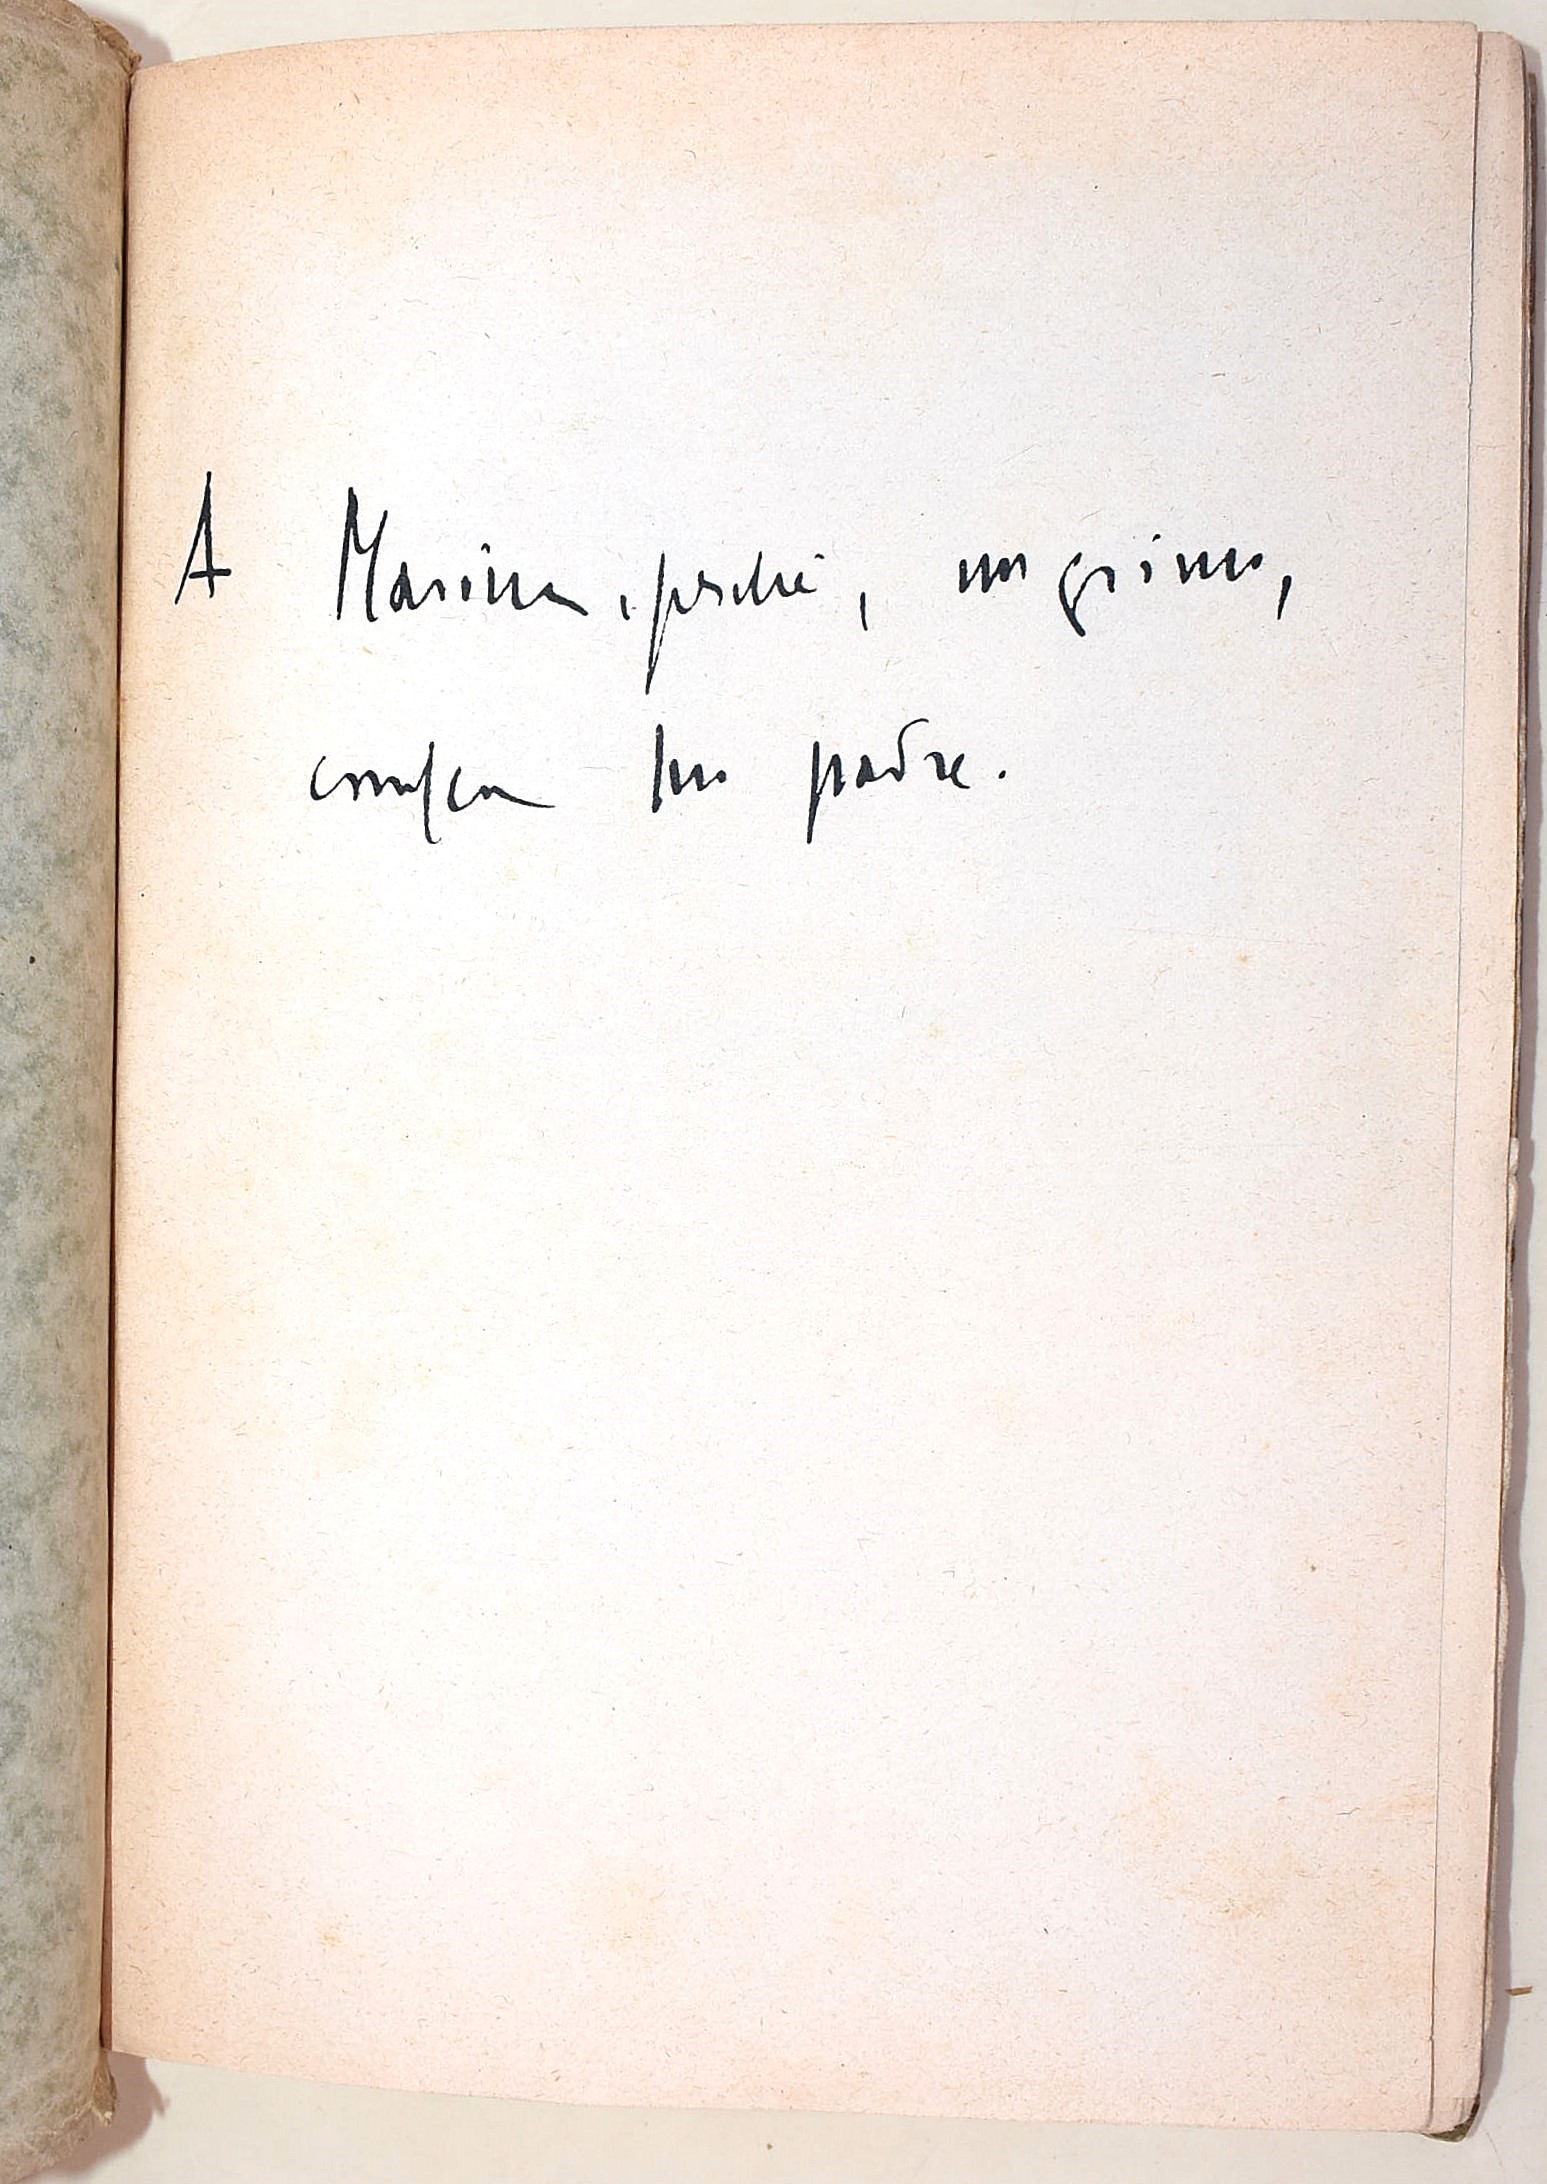 A Marina, perché, un giorno,
conosca suo padre.